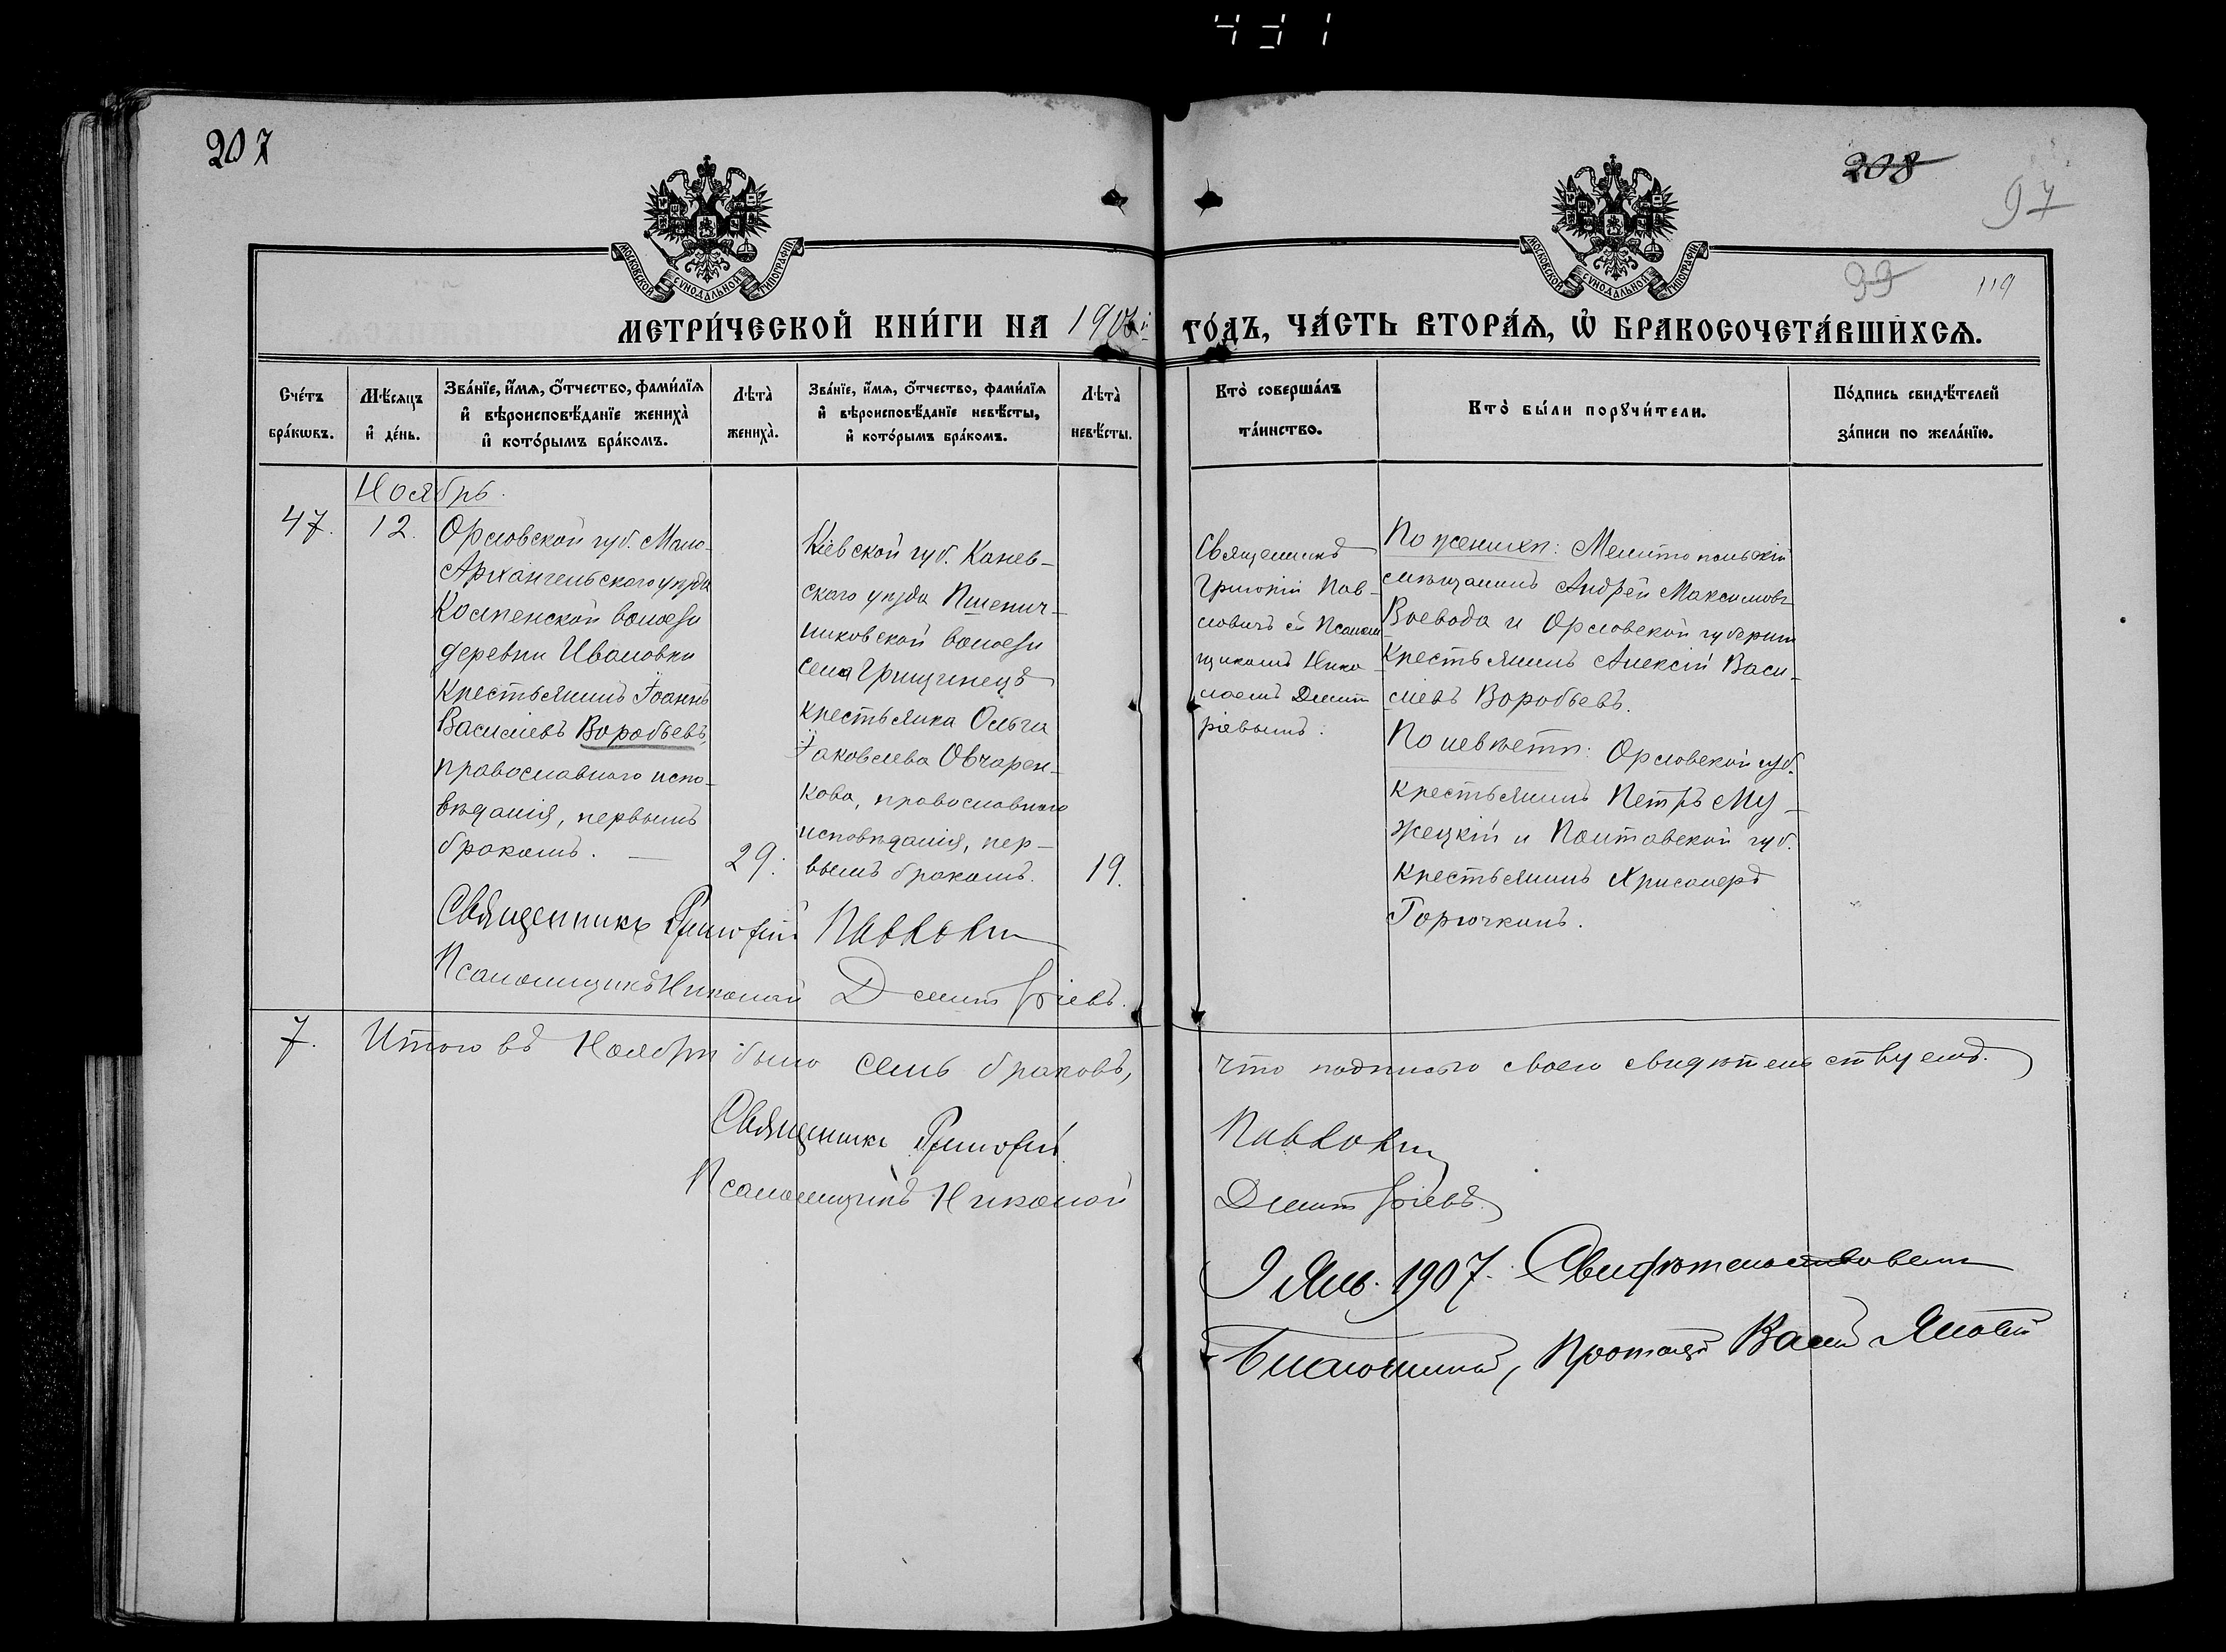 431
207
208
97
МОСКОВСКОЙ СѴНОДАЛЬНОЙ ТИПОГРАФІИ
МОСКОВСКОЙ СѴНОДАЛЬНОЙ ТИПОГРАФІИ
99
119
МЕТРИ́ЧЕСКОЙ КНИ́ГИ НА 1906й ГО́ДЪ, ЧА́СТЬ ВТОРА́Ѧ, Ѡ҆ БРАКОСОЧЕТА́ВШИХСѦ.
Сче́тъ бра́кѡвъ.
Мѣ́сяцъ и҆ де́нь.
Зва́нїе, и҆́мѧ, ѻ҆́тчество, фами́лїѧ
и҆ вѣроисповѣ́данїе жениха̀
и҆ кото́рымъ бра́комъ.
Лѣта̀ жениха̀.
Зва́нїе, и҆́мѧ, ѻ҆́тчество, фами́лїѧ
и҆ вѣроисповѣ́данїе невѣ́сты,
и҆ кото́рымъ бра́комъ.
Лѣта̀ невѣ́сты.
Кто̀ соверша́лъ та́инство.
Кто̀ бы́ли порꙋчи́тели.
По́дпись свидѣ́телей за́писи по жела́нїю.
Ноябрь.
47.
12.
Орловской губ. Мало-
Архангельскаго уѣзда
волости
деревни Ивановки
крестьянинъ Іоаннъ
Василіевъ Воробьевъ,
православнаго испо-
вѣданія, первымъ
бракомъ. —
29.
Кіевской губ. Канев-
скаго уѣзда Пшенич-
никовской волости
села Грищинецъ
крестьянка Ольга
Іаковлева Овчарен-
кова, православнаго
исповѣданія, пер-
вымъ бракомъ.
19.
Священникъ
Григорій Пав-
ловичъ съ Псалом
щикомъ Нико-
лаемъ Димит
ріевымъ.
По женихѣ: Мелитопольскій
мѣщанинъ Андрей Максимовъ
Воевода и Орловской губерніи
крестьянинъ Алексій Васи-
ліевъ Воробьевъ.
По невѣстѣ: Орловской губ.
крестьянинъ Петръ Му-
жецкій и Полтавской губ.
крестьянинъ Хрисанѳъ
Горючкинъ.
Священникъ Григорій Павловичъ
Псаломщикъ Николай Димитріевъ.
7.
Итого въ Ноябрѣ было семь браковъ, что подписью своею свидѣтельствуемъ.
Священникъ Григорій Павловичъ
Псаломщикъ Николай Димитріевъ.
9 Янв. 1907. Свидѣтельствовалъ
Благочинный,